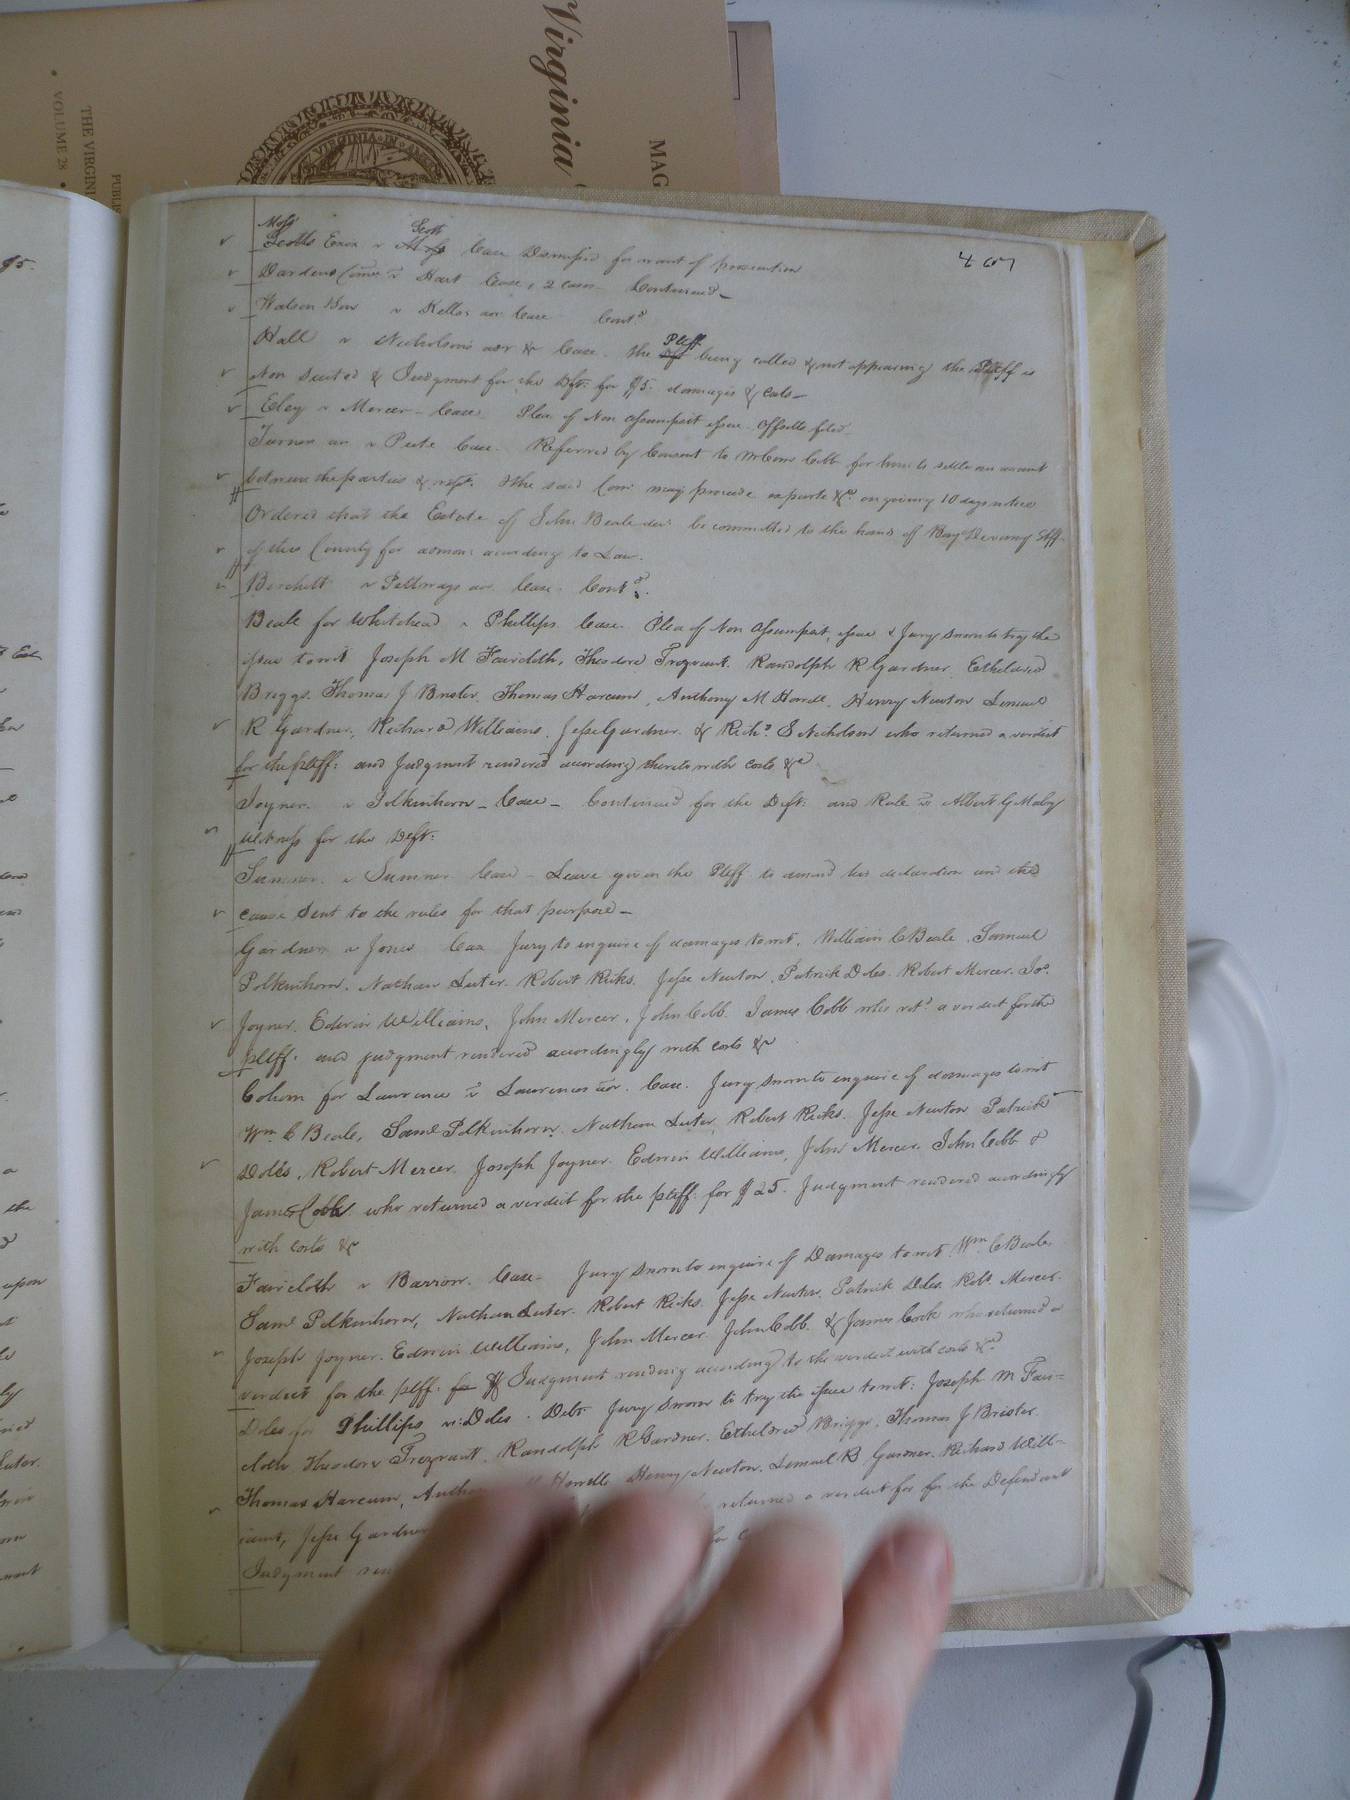 Virginia
MAG
THE VIRGINI
PUBLIS
VOLUME 28
VIRGINIA
Moss Scott
Scotts Exor v Case Dismissed for want of prosecution
Dardens Comee v Hart Case, 2 cases Continued
Watson Gov v Kello's aor Case Contd
Hall v Nicholson's aor &c Case. The Pltff being called & not appearing the Pltff is
Non Suited & Judgment for the Dft. for $5. damages & costs
Eley v Mercer Case Plea of Non assumpsit issue. Offsetts filed
Turner an v Pete Case. Referred by Consent to Wm Cobb for him to settle an account
between the parties & rept. & the said Com may proceed exparte &c. on giving 10 days notice
Ordered that the Estate of John Beale decd be committed to the hands of Devany Shff
of this County for admon. according to Law.
Birchett v Pettways aor. Case. Contd.
Beale for Whitehead v Phillips Case. Plea of Non Assumpsit, issue & Jury sworn to try the
issue towit Joseph M Faircloth, Theodore Trezvant. Randolph R Gardner. Etheldred
Briggs. Thomas J Brister. Thomas Harcum, Anthony M Howell. Henry Newton Lemuel
R Gardner, Richard Williams. Jesse Gardner. & Richd. S Nicholson who returned a verdict
for the pltff: and Judgment rendered according thereto with costs &c
Joyner. v Polkinhorn Case Continued for the Deft. and Rule vs Albert G Mabry
witness for the Deft.
Sumner. v Sumner Case Leave given the Pltff to amend his declaration and the
cause sent to the rules for that purpose
Gardner v Jones Case Jury to enquire of damages towit, William C Beale, Samuel
Polkinhorn. Nathan Luter. Robert Ricks. Jesse Newton. Patrick Doles. Robert Mercer. Jos.
Joyner. Edwin Williams, John Mercer, John Cobb. James Cobb who retd a verdict for the
pltff. and judgment rendered accordingly with costs &c
Cohorn for Lawrence v Lawrences aor. Case. Jury sworn to enquire of damages towit
Wm C Beale, Saml Polkinhorn. Nathan Luter, Robert Ricks. Jesse Newton Patrick
Doles, Robert Mercer. Joseph Joyner. Edwin Williams, John Mercer. John Cobb &
James Cobb who returned a verdict for the pltff: for $25. Judgment rendered accordingly
with costs &c
Faircloth v Barrow. Case Jury sworn to enquire of Damages towit Wm C Beale.
Saml Polkinhorn, Nathan Luter. Robert Ricks. Jesse Newton. Patrick Doles. Robt Mercer.
Joseph Joyner. Edwin Williams, John Mercer. John Cobb. & James Cobb who returned a
verdict for the pltff. for $ Judgment rendering according to the verdict with costs &c
Doles for Phillips v Doles. Debt Jury sworn to try the issue towit: Joseph M Fair=
cloth Theodore Trezvant. Randolph R Gardner. Etheldred Briggs. Thomas J Brister
Thomas Harcum, Howell Henry Newton. Lemuel R Gardner. Richard Will-
iams, Jesse Gardner returned a verdict for for the Defendant
Judgment